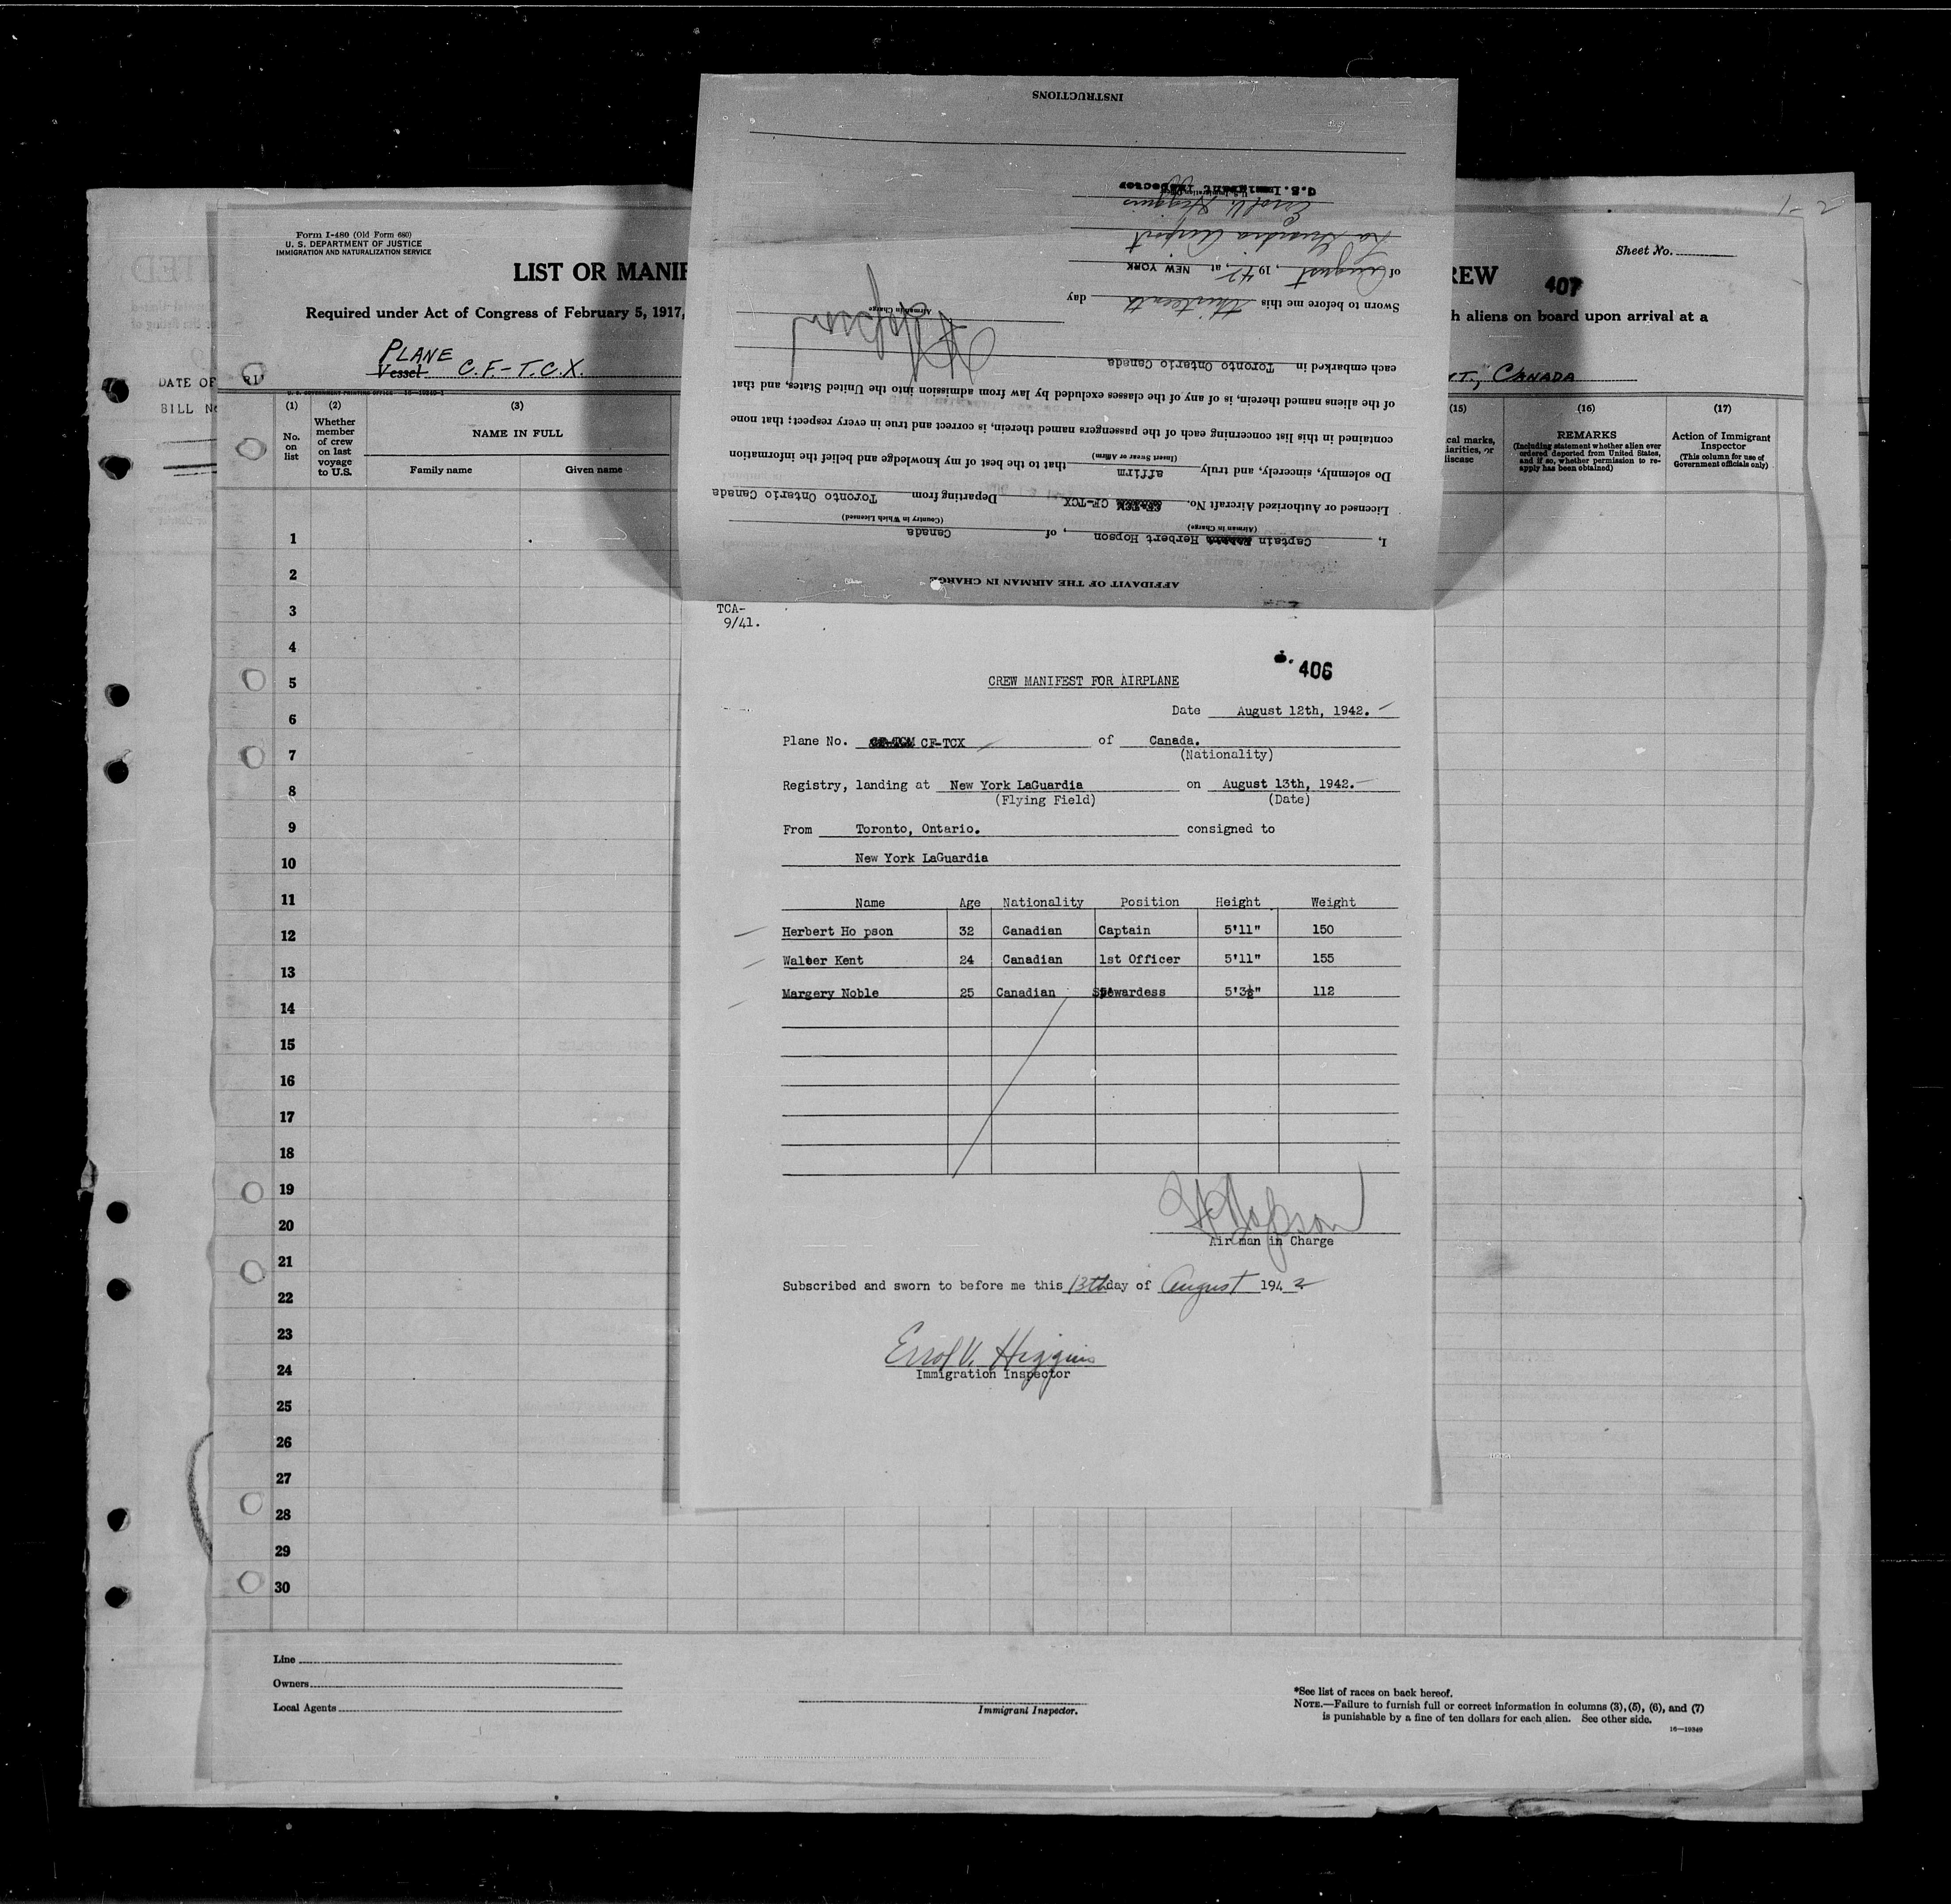 INSTRUCTIONS
U.S. Immigrant Inspector
Errol V. Higgins
La Guardia Airport
of August, 1942, at NEW YORK
Sworn to before me this thirteenth day
Airman in Charge
each embarked in Toronto Ontario Canada
of the aliens named therein, is of any of the classes excluded by law from admission into the United States, and that
contained in this list concerning each of the passengers named therein, is correct and true in every respect; that none
(Insert Swear or Affirm)
Do solemnly, sincerely, and truly affirm that to the best of my knowledge and belief the information
Licensed or Authorized Aircraft No. CF-TCX Departing from Toronto Ontario Canada
(Airman in Charge) (Country in Which Licensed)
I, Captain Herbert Hopson, of Canada
AFFIDAVIT OF THE AIRMAN IN CHARGE
1-2
Form I-480 (Old Form 680)
U. S. DEPARTMENT OF JUSTICE
IMMIGRATION AND NATURALIZATION SERVICE
Sheet No.
LIST OR MANIF
REW
407
Required under Act of Congress of February 5, 1917,
h aliens on board upon arrival at a
PLANE
Vessel C.F.-T.C.X.
NT., CANADA
DATE OF
BILL No
U. S. GOVERNMENT PRINTING OFFICE 16-19349-1
(1) (2) (3) (15) (16) (17)
No. on list
Whether member of crew on last voyage to U.S.
NAME IN FULL
Family name Given name
cal marks,
iarities, or
disease
REMARKS
(Including statement whether alien ever ordered deported from United States, and if so, whether permission to re-apply has been obtained)
Action of Immigrant Inspector
(This column for use of Government officials only)
1
2
3
4
5
6
7
8
9
10
11
12
13
14
15
16
17
18
19
20
21
22
23
24
25
26
27
28
29
30
TCA-
9/41.
406
CREW MANIFEST FOR AIRPLANE
Date August 12th, 1942.
Plane No. CF-TCX of Canada.
(Nationality)
Registry, landing at New York LaGuardia on August 13th, 1942.
(Flying Field) (Date)
From Toronto, Ontario. consigned to
New York LaGuardia
Name Age Nationality Position Height Weight
Herbert Ho pson 32 Canadian Captain 5'11" 150
Walter Kent 24 Canadian 1st Officer 5'11" 155
Margery Noble 25 Canadian Stewardess 5'3½" 112
H Hopson
Air man in Charge
Subscribed and sworn to before me this 13th day of August 1942
Errol V. Higgins
Immigration Inspector
Line
Owners
Local Agents
Immigrant Inspector.
*See list of races on back hereof.
NOTE.—Failure to furnish full or correct information in columns (3), (5), (6), and (7)
is punishable by a fine of ten dollars for each alien. See other side.
16—19349